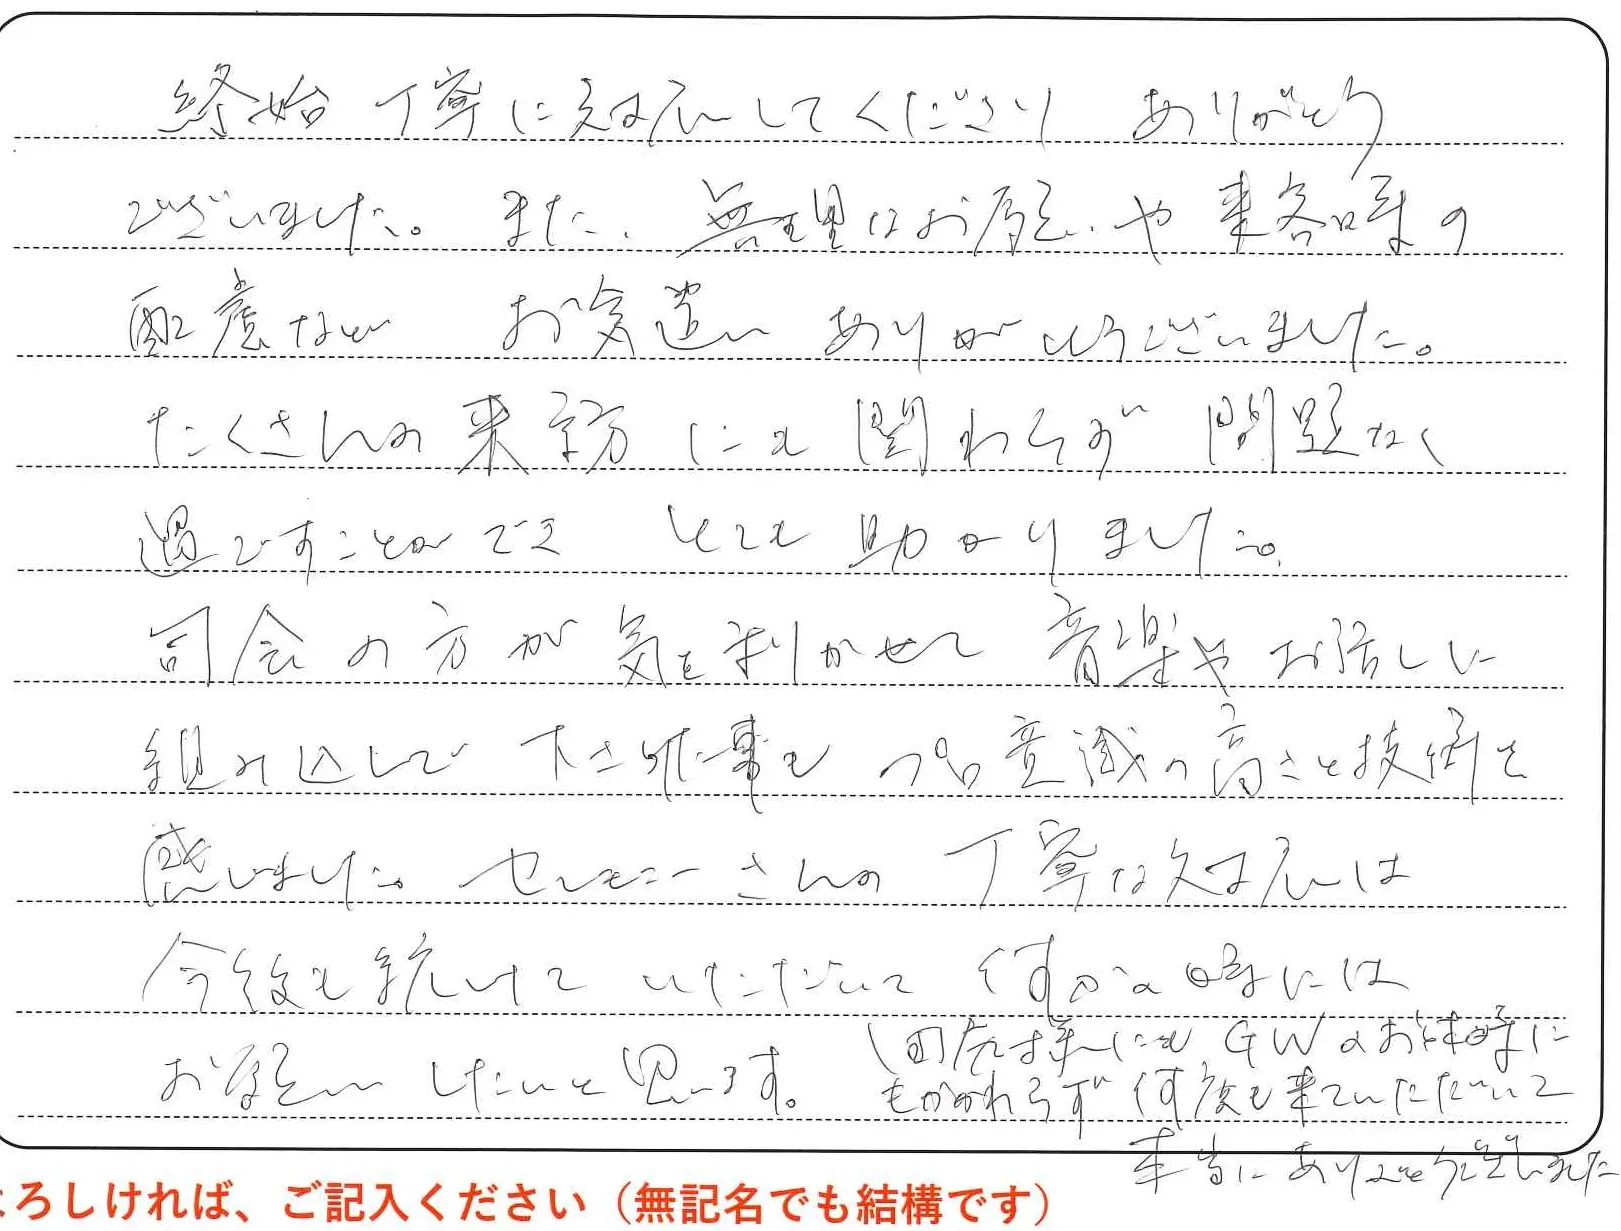 終始 丁寧に対応してくださり ありがとう
ございました。また、無理なお願いや来客時の
配慮など お気遣い ありがとうございました。
たくさんの来訪にも関わらず 問題なく
過ごすことができ とても助かりました。
司会の方が気を利かせて 音楽やお話しに
組み込んで下さった事も プロ意識の高さと技術を
感じました。セレモニーさんの 丁寧な対応は
今後も続けて いただいて 何かの時には
お願い したいと思います。
様にも GWのお休み時に
もかかわらず 何度も来ていただいて
本当にありがとうございました
よろしければ、ご記入ください（無記名でも結構です）